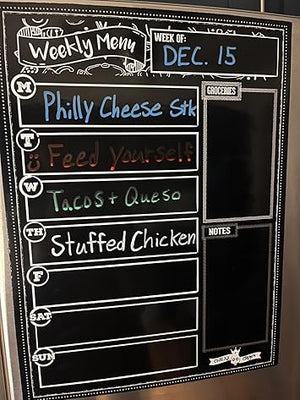 Weekly Menu
WEEK OF:
DEC. 15
M
Philly Cheese Stk
T
Feed yourself
W
Tacos + Queso
TH
Stuffed Chicken
F
SAT
SUN
GROCERIES
NOTES